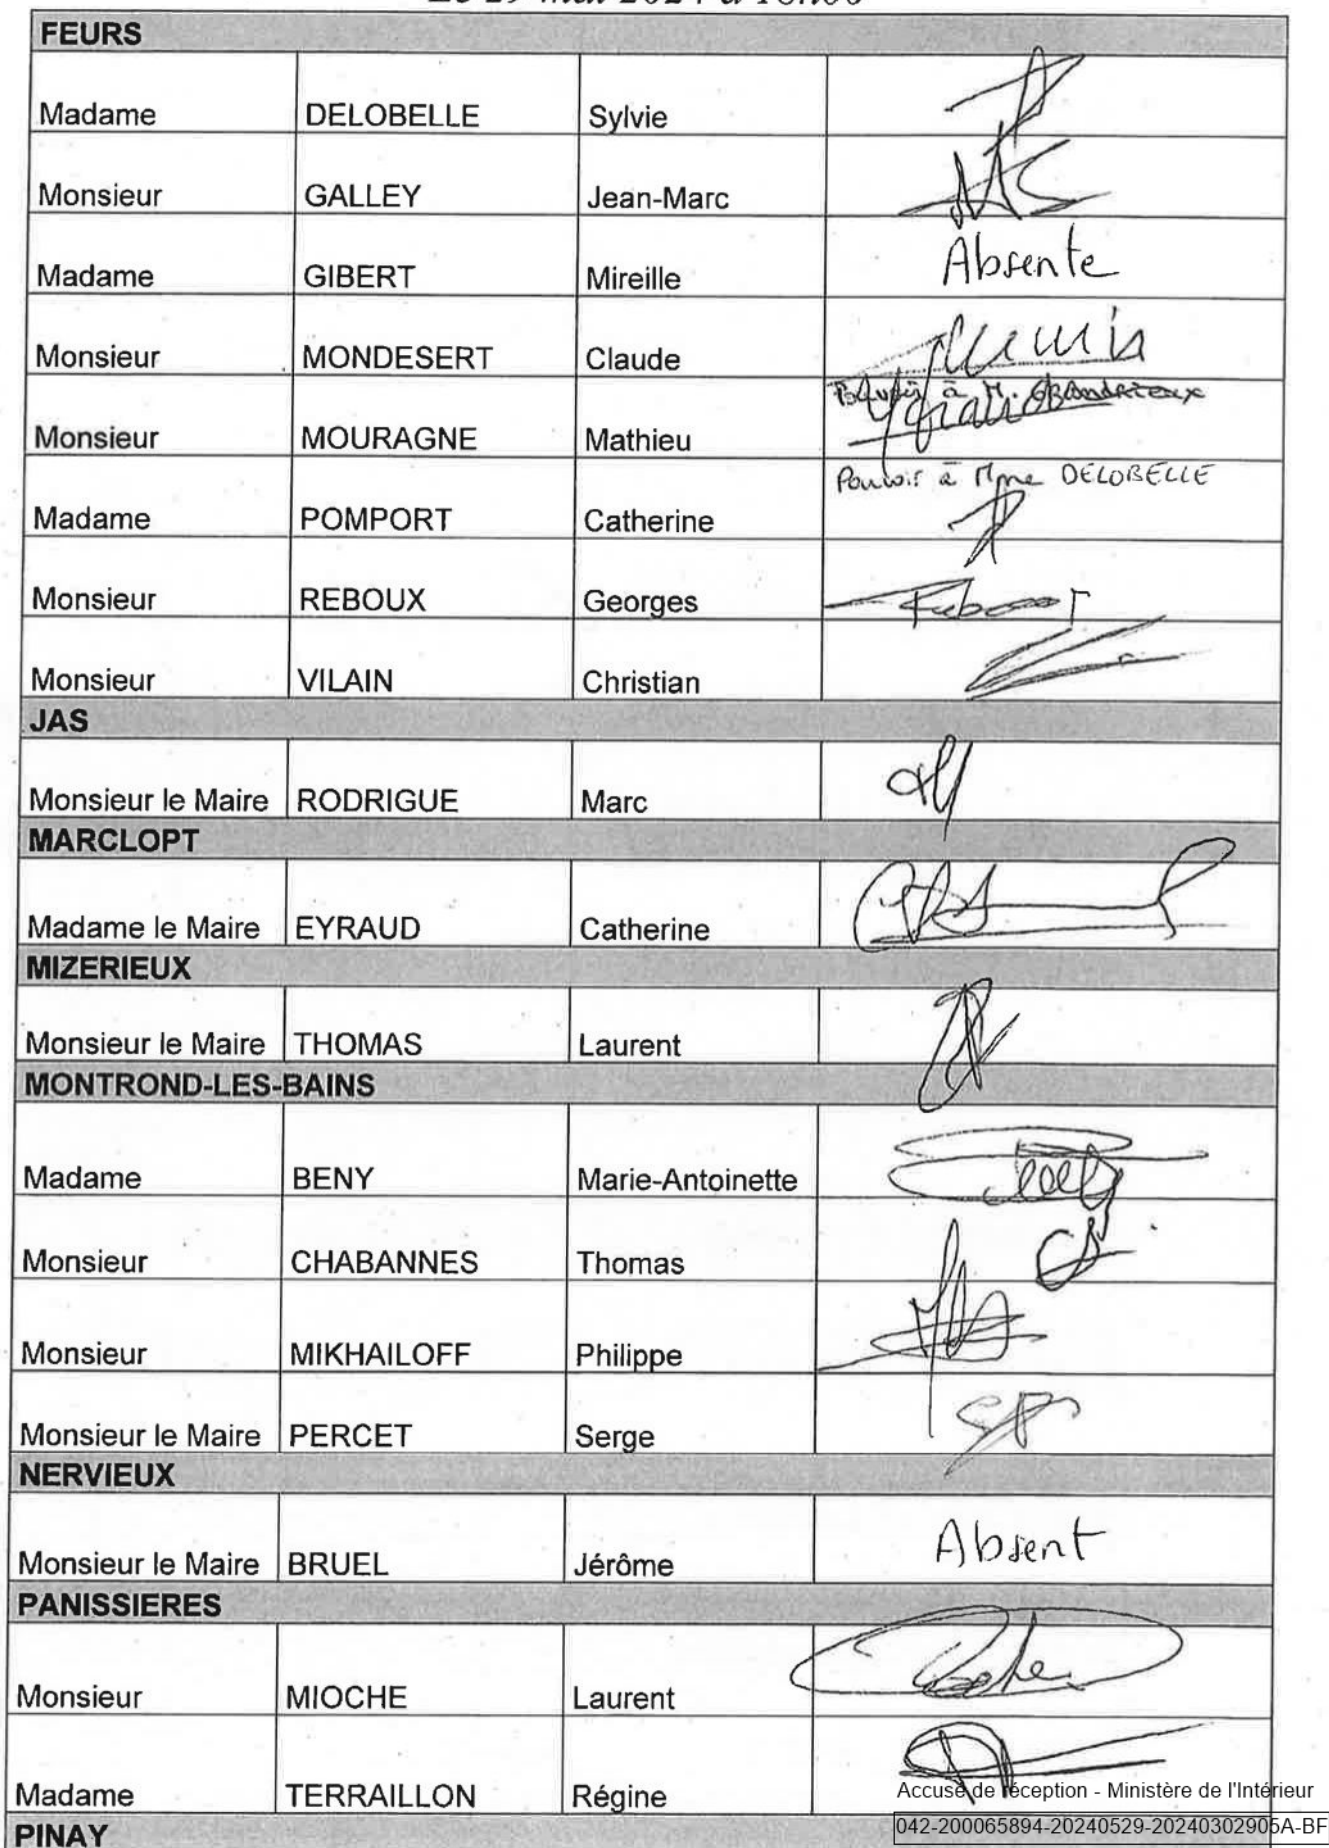 Le 29 mai 2024 à 18h00
FEURS
Madame DELOBELLE Sylvie
Monsieur GALLEY Jean-Marc
Madame GIBERT Mireille Absente
Monsieur MONDESERT Claude
Pouvoir à M. GRANDRIEUX
Monsieur MOURAGNE Mathieu
Pouvoir à Mme DELOBELLE
Madame POMPORT Catherine
Monsieur REBOUX Georges
Monsieur VILAIN Christian
JAS
Monsieur le Maire RODRIGUE Marc
MARCLOPT
Madame le Maire EYRAUD Catherine
MIZERIEUX
Monsieur le Maire THOMAS Laurent
MONTROND-LES-BAINS
Madame BENY Marie-Antoinette
Monsieur CHABANNES Thomas
Monsieur MIKHAILOFF Philippe
Monsieur le Maire PERCET Serge
NERVIEUX
Monsieur le Maire BRUEL Jérôme Absent
PANISSIERES
Monsieur MIOCHE Laurent
Madame TERRAILLON Régine
Accusé de réception - Ministère de l'Intérieur
042-200065894-20240529-20240302905A-BF
PINAY